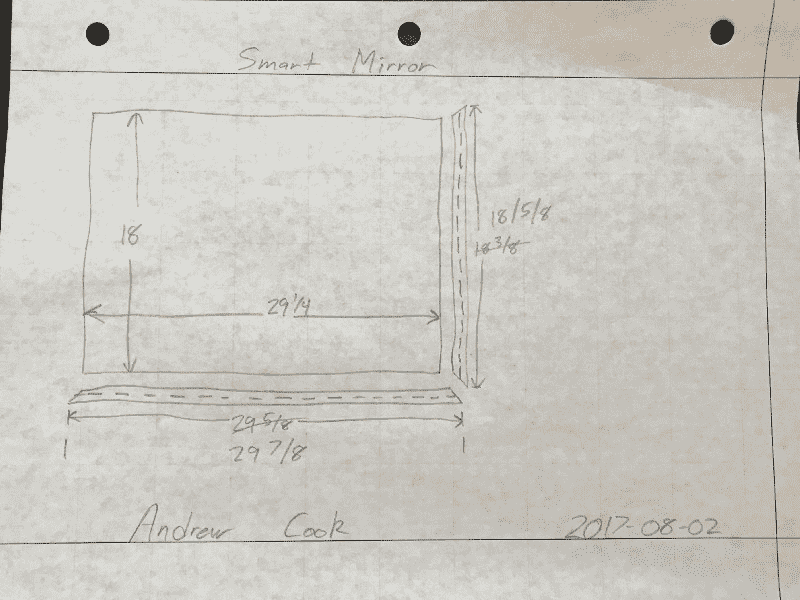 Smart Mirror
18
18/5/8
18 3/8
29 1/4
29 5/8
29 7/8
Andrew Cook
2017-08-02